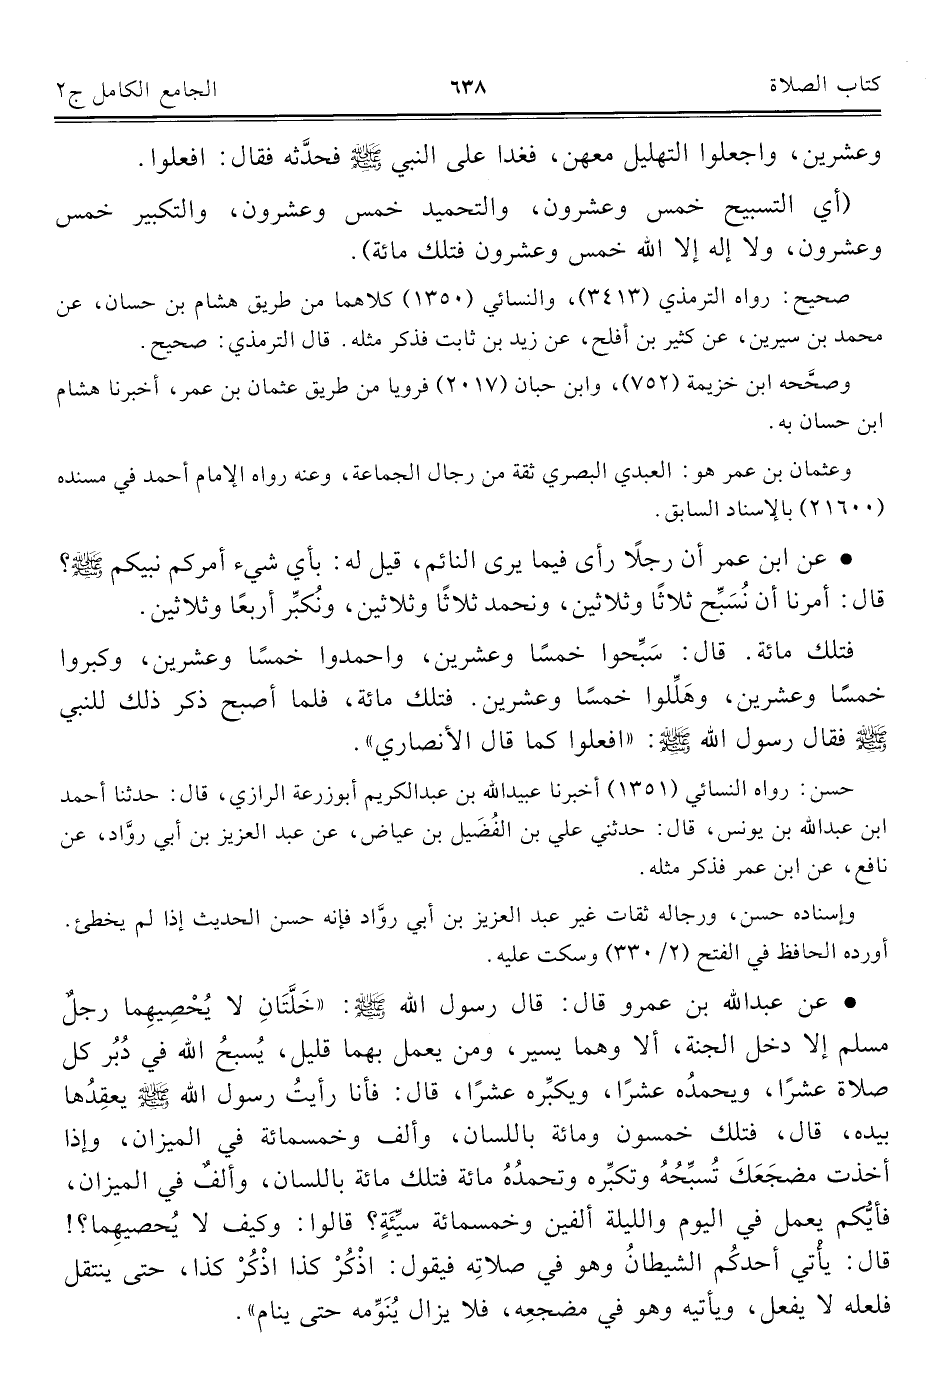 كتاب الصلاة ٦٣٨ الجامع الكامل ج٢
وعشرين، واجعلوا التهليل معهن، فغدا على النبي ﷺ فحدَّثه فقال: افعلوا.
(أي التسبيح خمس وعشرون، والتحميد خمس وعشرون، والتكبير خمس
وعشرون، ولا إله إلا الله خمس وعشرون فتلك مائة).
صحيح: رواه الترمذي (٣٤١٣)، والنسائي (١٣٥٠) كلاهما من طريق هشام بن حسان، عن
محمد بن سيرين، عن كثير بن أفلح، عن زيد بن ثابت فذكر مثله. قال الترمذي: صحيح.
وصحَّحه ابن خزيمة (٧٥٢)، وابن حبان (٢٠١٧) فرويا من طريق عثمان بن عمر، أخبرنا هشام
ابن حسان به.
وعثمان بن عمر هو: العبدي البصري ثقة من رجال الجماعة، وعنه رواه الإمام أحمد في مسنده
(٢١٦٠٠) بالإسناد السابق.
• عن ابن عمر أن رجلًا رأى فيما يرى النائم، قيل له: بأي شيء أمركم نبيكم ﷺ؟
قال: أمرنا أن نُسَبِّح ثلاثًا وثلاثين، ونحمد ثلاثًا وثلاثين، ونُكبِّر أربعًا وثلاثين.
فتلك مائة. قال: سَبِّحوا خمسًا وعشرين، واحمدوا خمسًا وعشرين، وكبروا
خمسًا وعشرين، وهَلِّلوا خمسًا وعشرين. فتلك مائة، فلما أصبح ذكر ذلك للنبي
ﷺ فقال رسول الله ﷺ: «افعلوا كما قال الأنصاري».
حسن: رواه النسائي (١٣٥١) أخبرنا عبيدالله بن عبدالكريم أبوزرعة الرازي، قال: حدثنا أحمد
ابن عبدالله بن يونس، قال: حدثني علي بن الفُضَيل بن عياض، عن عبد العزيز بن أبي روَّاد، عن
نافع، عن ابن عمر فذكر مثله.
وإسناده حسن، ورجاله ثقات غير عبد العزيز بن أبي روَّاد فإنه حسن الحديث إذا لم يخطئ.
أورده الحافظ في الفتح (٢/ ٣٣٠) وسكت عليه.
• عن عبدالله بن عمرو قال: قال رسول الله ﷺ: «خَلَّتَانِ لا يُحْصِيهِما رجلٌ
مسلم إلا دخل الجنة، ألا وهما يسير، ومن يعمل بهما قليل، يُسبحُ الله في دُبُر كل
صلاة عشرًا، ويحمدُه عشرًا، ويكبِّره عشرًا، قال: فأنا رأيتُ رسول الله ﷺ يعقِدُها
بيده، قال، فتلك خمسون ومائة باللسان، وألف وخمسمائة في الميزان، وإذا
أخذت مضجَعَكَ تُسبِّحُهُ وتكبِّره وتحمدُهُ مائة فتلك مائة باللسان، وألفٌ في الميزان،
فأيُّكم يعمل في اليوم والليلة ألفين وخمسمائة سيِّئَةٍ؟ قالوا: وكيف لا يُحصيهِما؟!
قال: يأْتي أحدكُم الشيطانُ وهو في صلاتِه فيقول: اذْكُرْ كذا اذْكُرْ كذا، حتى ينتقل
فلعله لا يفعل، ويأتيه وهو في مضجعِه، فلا يزال يُنَوِّمه حتى ينام».